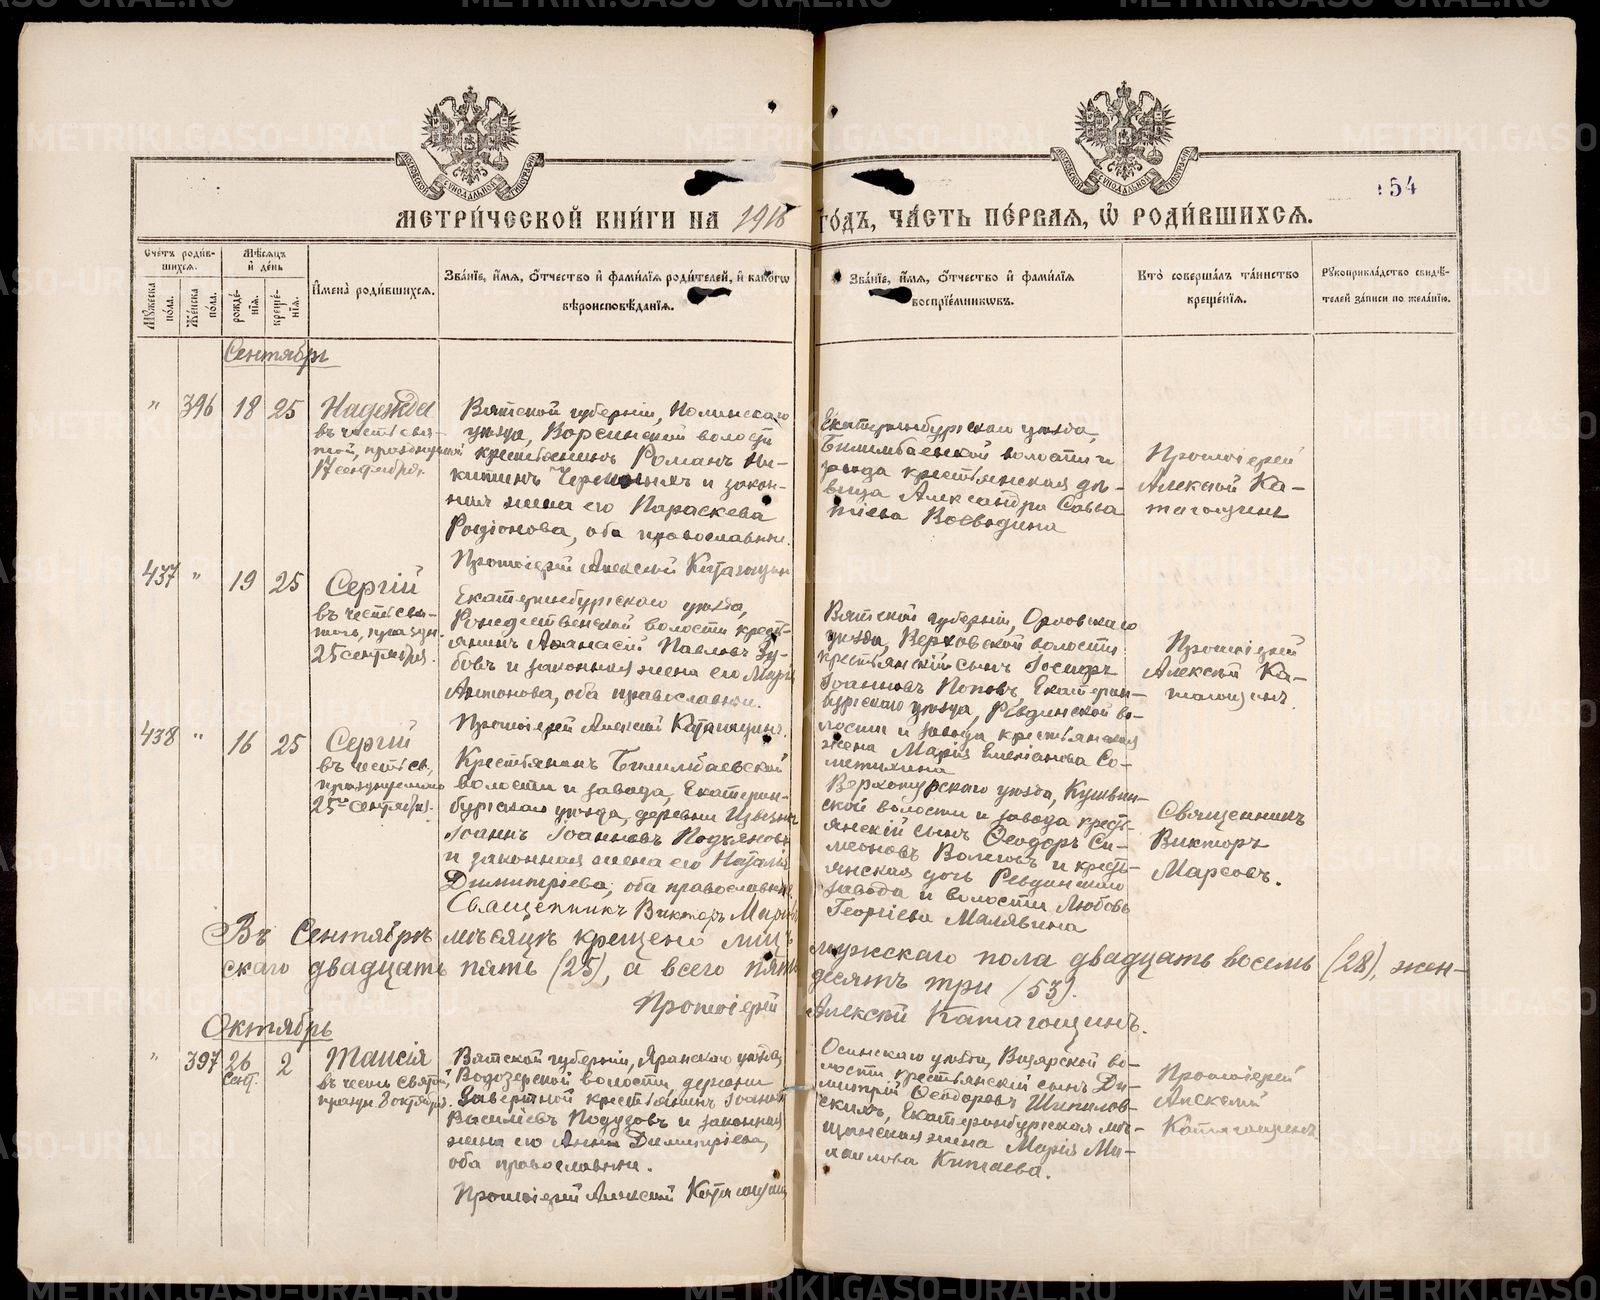 54
МЕТРИ́ЧЕСКОЙ КНИ́ГИ НА 1916 ГО́ДЪ, ЧА́СТЬ ПЕ́РВАЯ, Ѡ҆ РОДИ́ВШИХСЯ.
Сче́тъ роди́в-
шихся.
Му́жеска по́ла.
Же́нска по́ла.
Мѣ́сяцъ и҆ де́нь
рожде́-
нїя.
креще́-
нїя.
И҆мена̀ роди́вшихся.
Зва́нїе, и҆́мя, ѻ҆́тчество и҆ фами́лїя роди́телей, и҆ како́гѡ
вѣроисповѣ́данїя.
Зва́нїе, и҆́мя, ѻ҆́тчество и҆ фами́лїя
воспрїе́мникѡвъ.
Кто̀ соверша́лъ та́инство
креще́нїя.
Рꙋкоприкла́дство свидѣ́-
телей за́писи по жела́нїю.
Сентябрь
" 396 18 25
Надежда
въ честь свя-
той, празднуемой
17 сентября.
Вятской губерніи, Нолинскаго
уѣзда, волости
крестьянинъ Романъ Ни-
китинъ и закон-
ная жена его Параскева
Родіонова, оба православные.
Протоіерей Алексей Катагощин
Екатеринбургскаго уѣзда,
Билимбаевской волости и
завода крестьянская дѣ-
вица Александра Савва-
тіева Воеводина
Протоіерей
Алексей Ка-
тагощинъ
437 " 19 25
Сергій
въ честь свя-
того, празднуем.
25 сентября.
Екатеринбургскаго уѣзда,
Рождественской волости кресть-
янинъ Аѳанасій Павловъ Зу-
бовъ и законная жена его Марія
Антонова, оба православные.
Протоіерей Алексей Катагощинъ.
Вятской губерніи, Орловскаго
уѣзда, Верховской волости
крестьянскій сынъ Іосифъ
Іоанновъ Поповъ, Екатерин-
бургскаго уѣзда, Ревдинской во-
лости и завода крестьянская
жена Марія Емеліанова Со-
метихина
Протоіерей
Алексей Ка-
тагощинъ.
438 " 16 25
Сергій
въ честь св.,
празднуемаго
25го сентября.
Крестьянинъ Билимбаевской
волости и завода, Екатерин-
бургскаго уѣзда, деревни
Іоаннъ Іоанновъ Подъяновъ
и законная жена его Наталія
Димитріева, оба православные.
Священникъ Викторъ Марсовъ
Верхотурскаго уѣзда, Кушвин-
ской волости и завода кресть-
янскій сынъ Ѳеодоръ Си-
меоновъ и кресть-
янская дочь Ревдинскаго
завода и волости Любовь
Георгіева Малявина
Священникъ
Викторъ
Марсовъ.
Въ Сентябрѣ мѣсяцѣ крещено лицъ мужскаго пола двадцать восемь (28), жен-
скаго двадцать пять (25), а всего пять десятъ три (53).
Протоіерей Алексей Катагощинъ.
Октябрь
" 397 26 2
Сент.
Таисія
въ честь святой,
празун. 8 октября.
Вятской губерніи, Яранскаго уѣзда,
Водозерской волости, деревни
Завертной крестьянинъ Іоаннъ
Василіевъ Подузовъ и законная
жена его Анна Димитріева,
оба православные.
Протоіерей Алексей Катагощин
Осинскаго уѣзда, во-
лости крестьянскій сынъ Ди-
митрій Ѳеодоровъ Шипилов-
скихъ, Екатеринбургская мѣ-
щанская жена Марія Ми-
хаилова Китаева.
Протоіерей
Алексей
Катагощинъ
METRIKI.GASO-URAL.RU